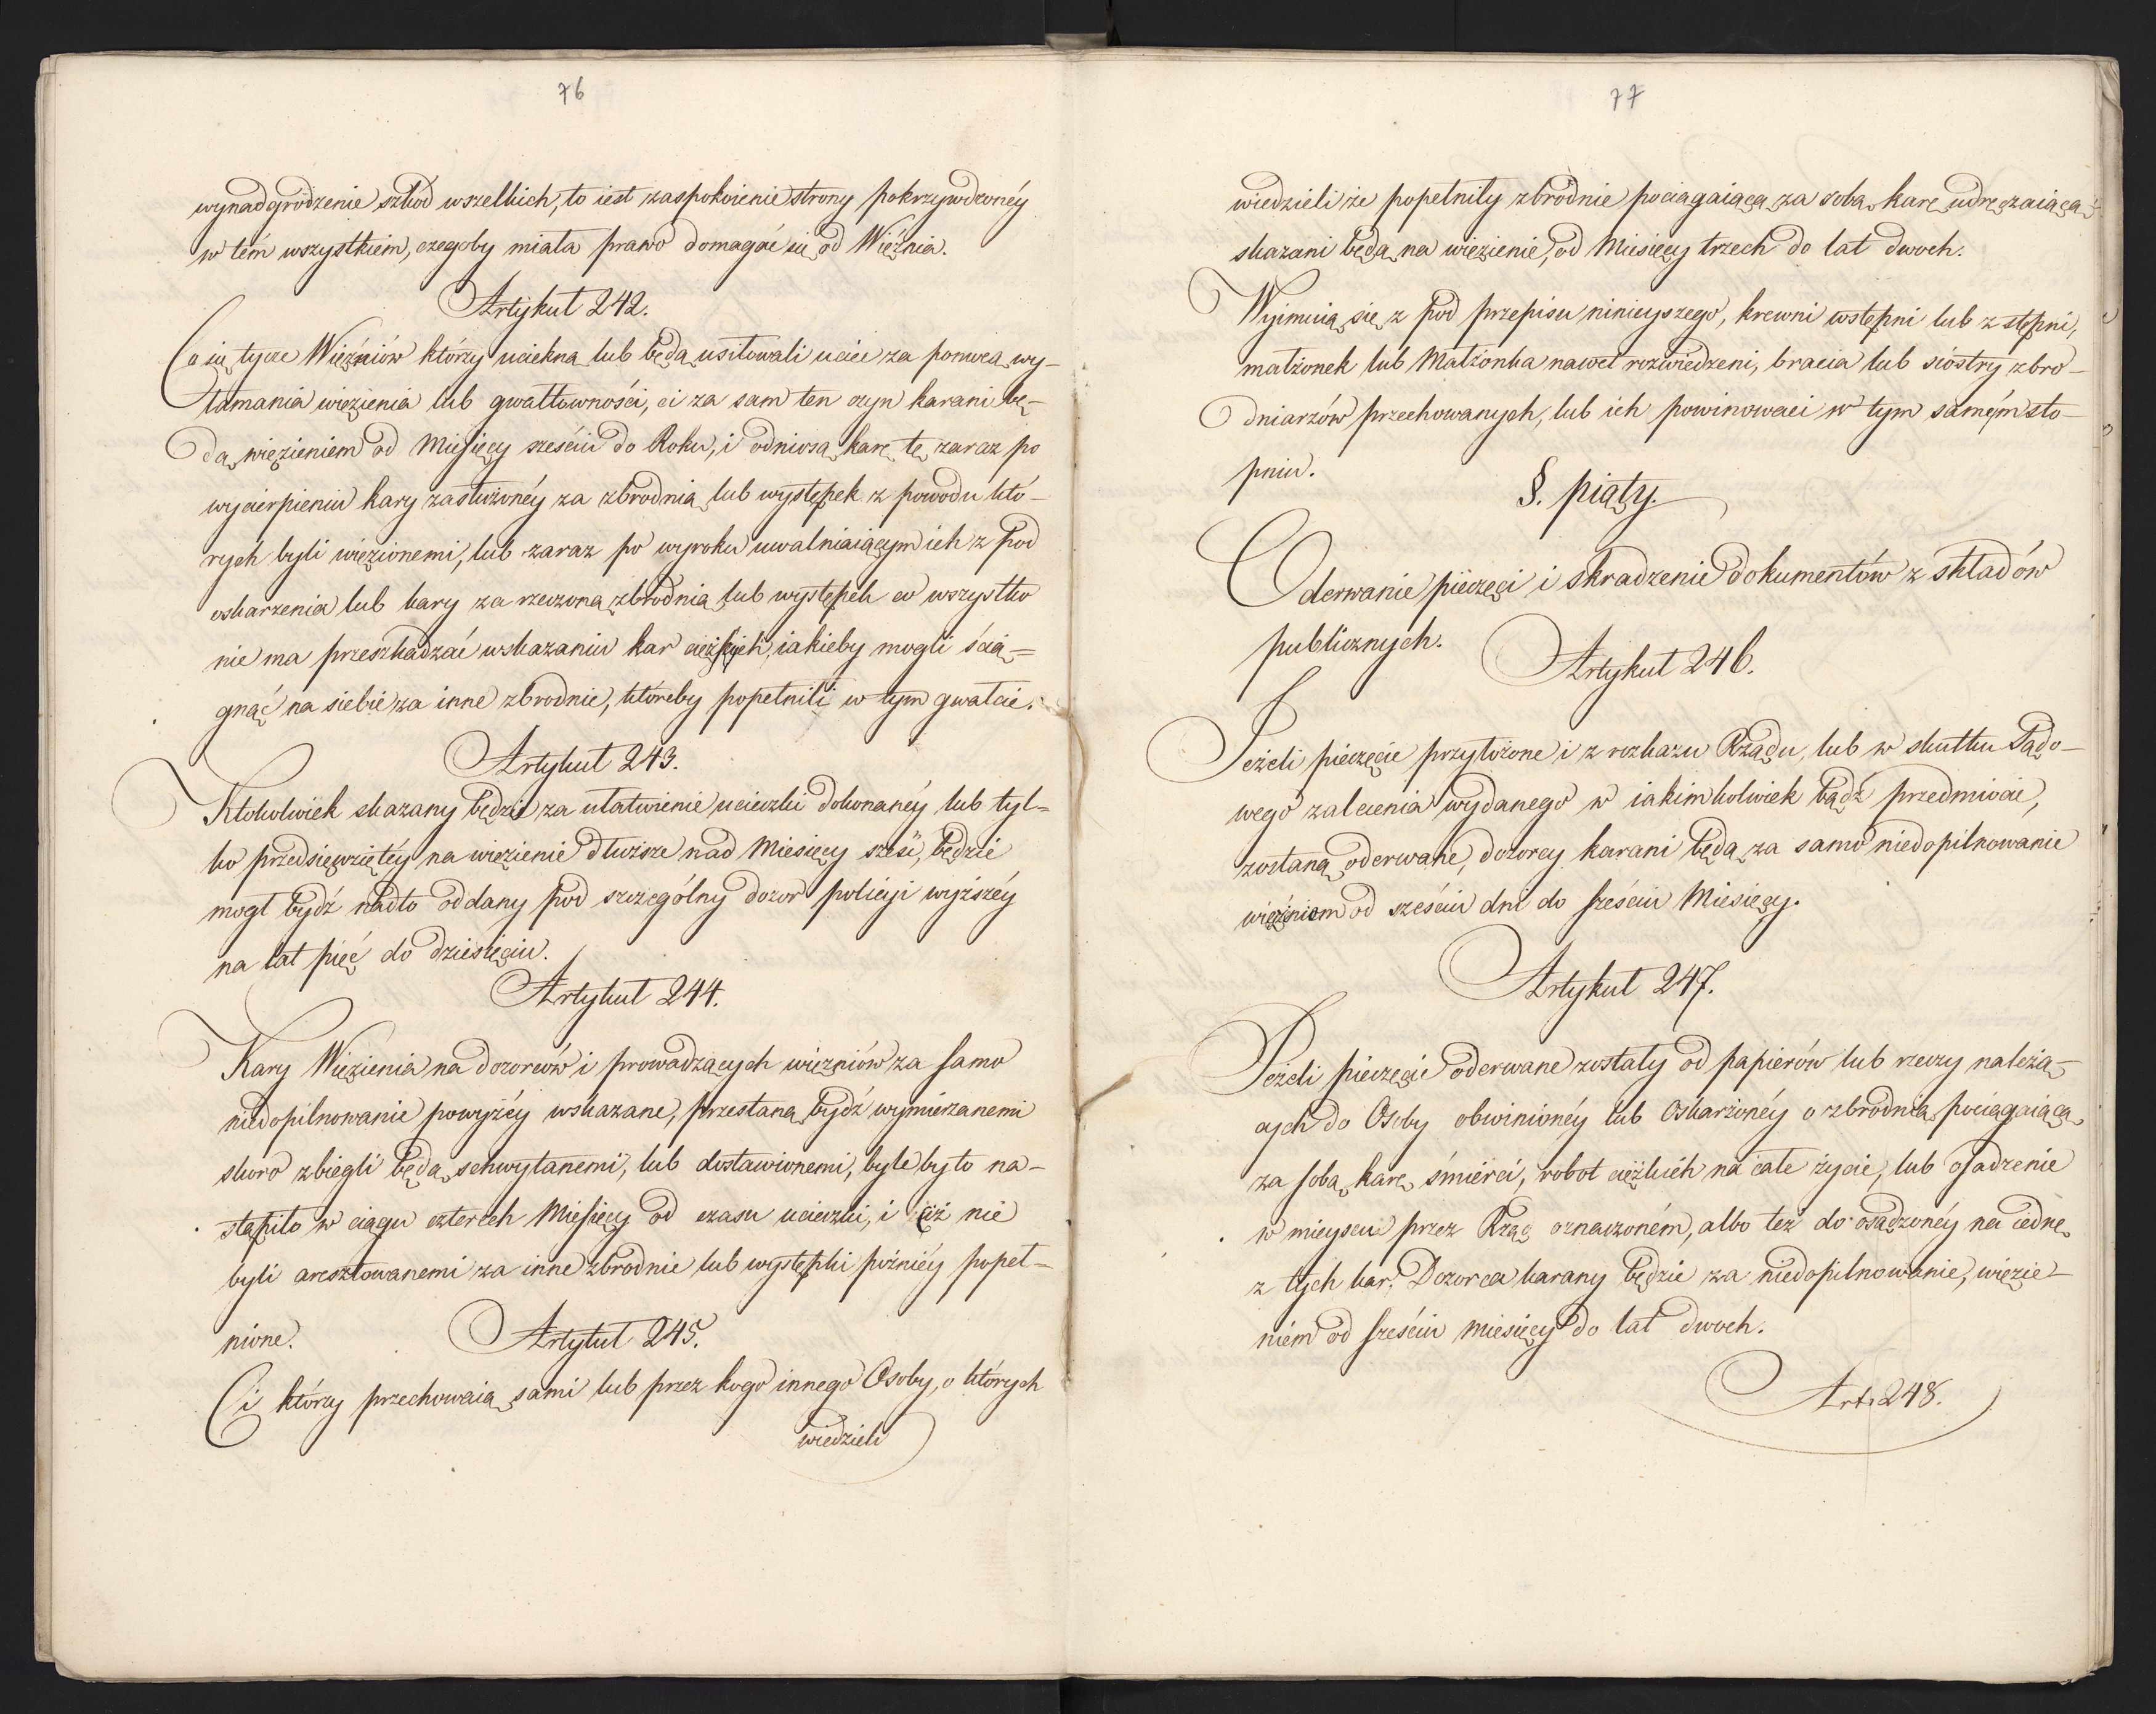 76
wynadgrodzenie szkód wszelkich, to iest zaspokoienie strony pokrzywdzonéy
w tém wszystkiem, czegoby miała prawo domagać się od Więźnia.
Artykuł 242.
Co się tycze Więźniów którzy uciekną lub będą usiłowali uciec za pomocą wy-
łamania więzienia lub gwałtowności, ci za sam ten czyn karani bę-
dą więzieniem od Miesięcy sześciu do Roku, i odniosą karę tę zaraz po
wycierpieniu kary zasłużonéy za zbrodnią lub występek z powodu któ-
rych byli więzionemi, lub zaraz po wyroku uwalniaiącym ich z pod
oskarżenia lub kary za rzeczoną zbrodnią lub występek co wszystko
nie ma przeszkadzać wskazaniu kar cięższych, iakieby mogli ścią=
gnąć na siebie za inne zbrodnie, któreby popełnili w tym gwałcie.
Artykuł 243.
Ktokolwiek skazany będzie za ułatwienie ucieczki dokonanéy lub tyl=
ko przedsięwziętéy na więzienie dłuższe nad Miesięcy sześć, będzie
mogł bydź nadto oddany pod szczególny dozor policyi wyższéy
na lat pięć do dziesięciu.
Artykuł 244.
Kary Więzienia na dozorców i prowadzących więzniów za samo
niedopilnowanie powyżéy wskazane, przestaną bydź wymierzanemi
skoro zbiegli będą schwytanemi, lub dostawionemi, byle by to na-
stąpiło w ciągu czterech Miesięcy od czasu ucieczki, i iż nie
byli aresztowanemi za inne zbrodnie lub występki późniéy popeł=
nione.
Artykuł 245.
Ci którzy przechowaią sami lub przez kogo innego Osoby, o których
wiedzieli
77
wiedzieli że popełniły zbrodnie pociągaiącą za sobą karę udręczaiącą
skazani będą na więzienie, od Miesięcy trzech do lat dwoch.
Wyimuią się z pod przepisu ninieyszego, krewni wstępni lub zstępni,
małżonek lub Małżonka nawet rozwiedzeni, bracia lub siostry zbro-
dniarzów przechowanych, lub ich powinowaci w tym saméym sto-
pniu.
§. piąty.
Oderwanie pieczęci i skradzenie dokumentów z składów
publicznych.
Artykuł 246.
Jeżeli pieczęcie przyłożone i z rozkazu Rządu, lub w skutku Sądo-
wego zalecenia wydanego w iakimkolwiek bądź przedmiocie,
zostaną oderwane, dozorcy karani będą za samo niedopilnowanie
więzieniem od sześciu dni do sześciu Miesięcy.
Artykuł 247.
Jeżeli pieczęcie oderwane zostały od papierów lub rzeczy należą-
cych do Osoby obwinionéy lub Oskarżonéy o zbrodnią pociągaiącą
za sobą karę śmierci, robot ciężkich na całe życie, lub osadzenie
w mieyscu przez Rząd oznaczoném, albo też do osądzonéy na iednę
z tych kar; Dozorca karany będzie za niedopilnowanie, więzie-
niem od sześciu miesięcy do lat dwoch.
Art. 248.